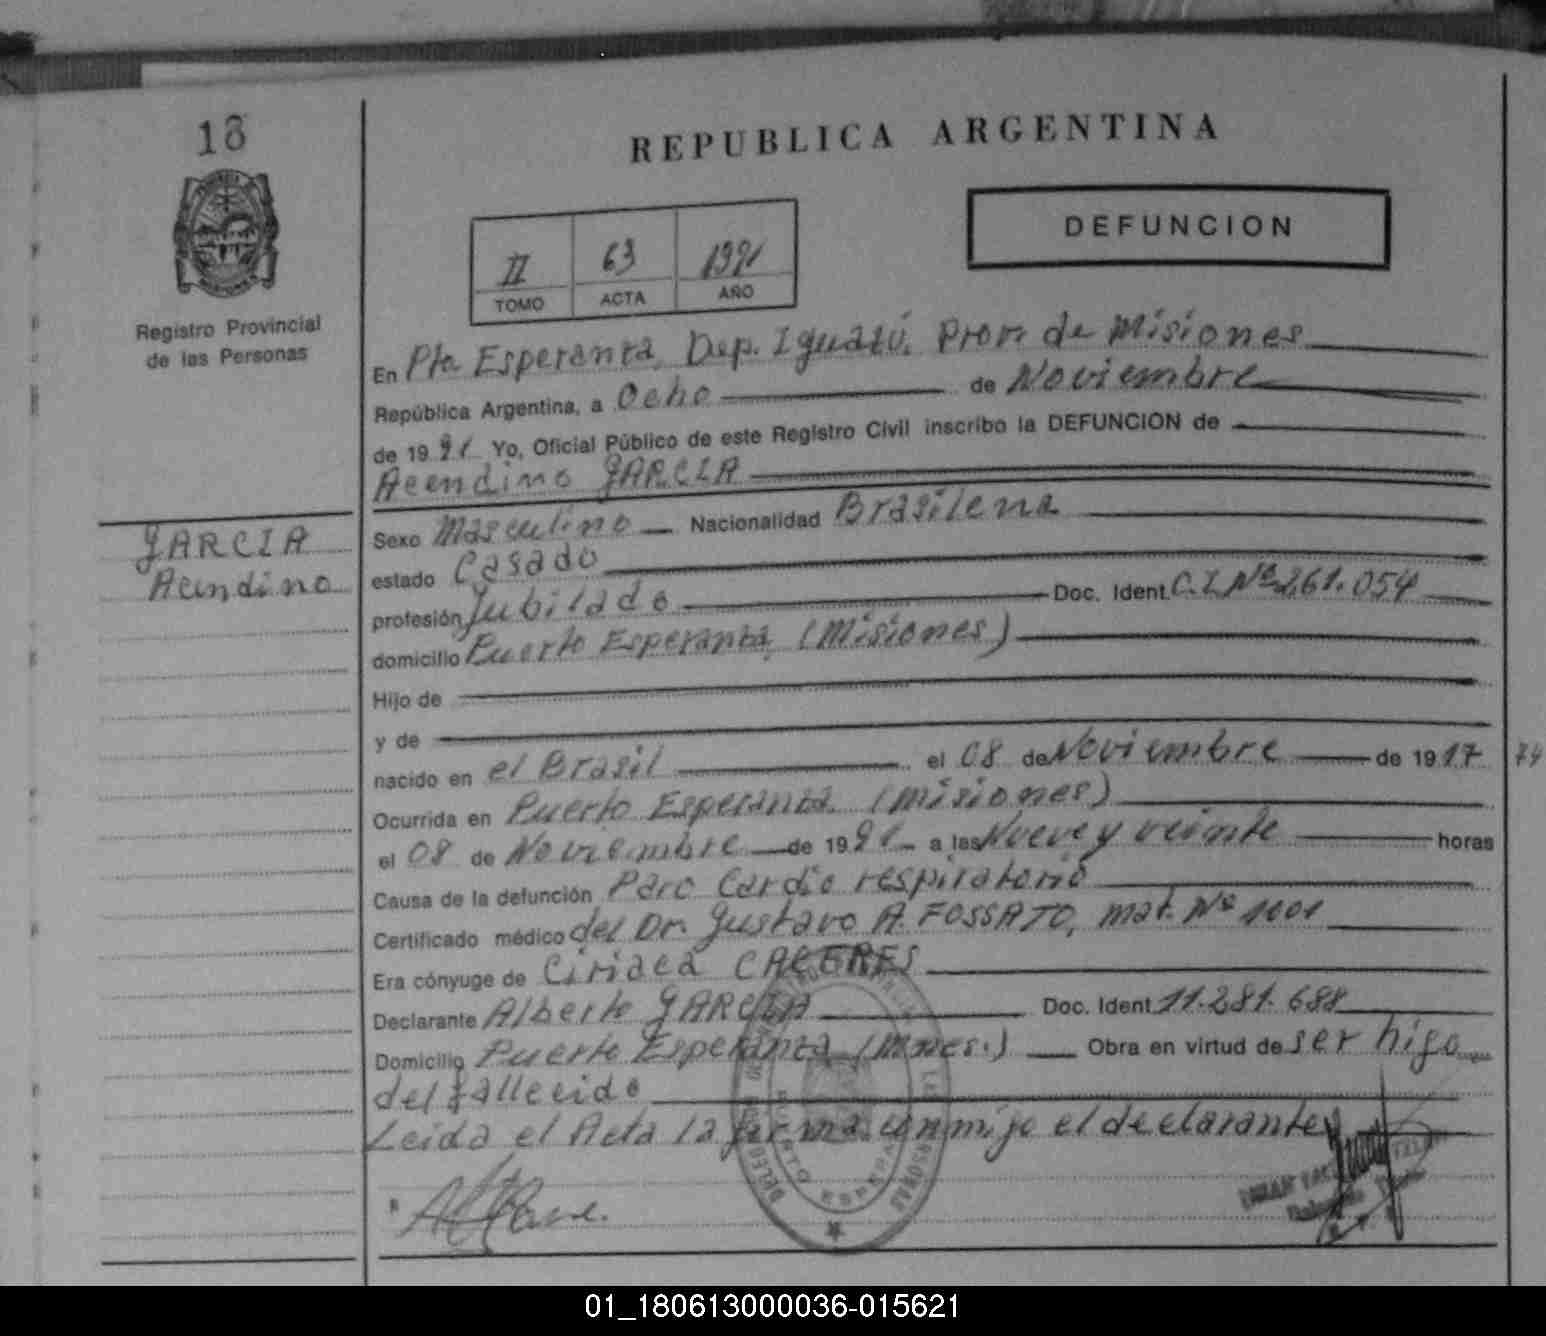 18
REPUBLICA ARGENTINA
DEFUNCION
II 63 1991
TOMO ACTA AÑO
Registro Provincial
de las Personas
En Pto Esperanza, Dep. Iguazú, Prov. de Misiones
República Argentina, a Ocho de Noviembre
de 1991 Yo, Oficial Público de este Registro Civil inscribo la DEFUNCION de
Acendino GARCIA
GARCIA
Acendino
Sexo Masculino Nacionalidad Brasilena
estado Casado
profesión Jubilado Doc. Ident. C.I. Nº 261.054
domicilio Puerto Esperanza, (Misiones)
Hijo de
y de
nacido en el Brasil el 08 de Noviembre de 1917 74
Ocurrida en Puerto Esperanza (Misiones)
el 08 de Noviembre de 1991 a las Nueve y veinte horas
Causa de la defunción Paro Cardio respiratorio
Certificado médico del Dr. Gustavo A. FOSSATO, mat. Nº 1001
Era cónyuge de Ciriaca CACERES
Declarante Alberto GARCIA Doc. Ident. 11.281.688
Domicilio Puerto Esperanza (Mnes.) Obra en virtud de ser hijo
del fallecido
Leida el Acta la firma conmigo el declarante
01_180613000036-015621